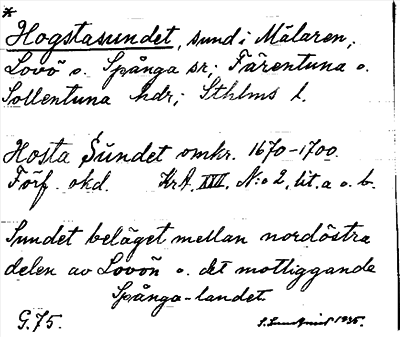 *
Hogstasundet, sund i Mälaren,
Lovö o. Spånga sr; Färentuna o.
Sollentuna hdr; Sthlms l.
Hosta Sŭndet omkr. 1670-1700.
Förf. okd. KrA, XVI, N:o 2, lit. a o. b.
Sundet beläget mellan nordöstra
delen av Lovön o. det motliggande
Spånga-landet.
G.75. 1935.